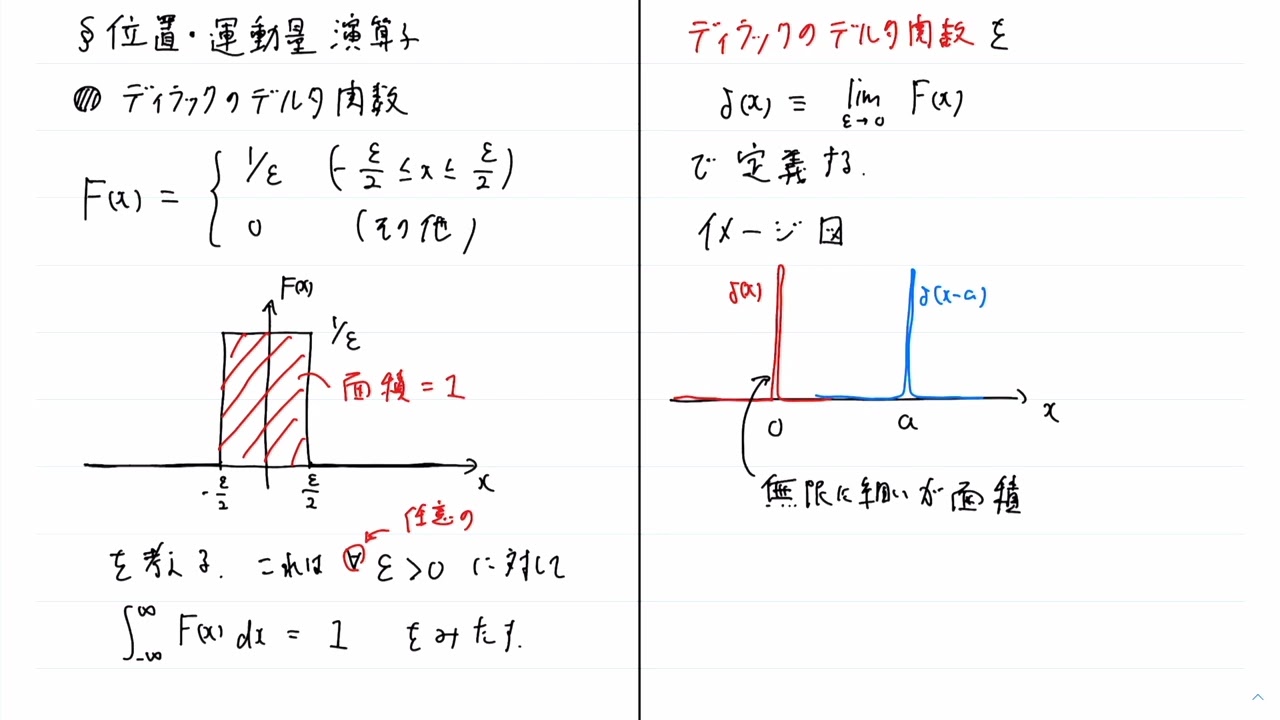 § 位置・運動量 演算子
ディラックのデルタ関数
F(x) = { 1/ε (-ε/2 ≤ x ≤ ε/2)
0 (その他)
F(x)
1/ε
面積 = 1
-ε/2
ε/2
x
任意の
を考える. これは ∀ ε>0 に対して
∫_{-∞}^{∞} F(x) dx = 1 をみたす.
ディラックのデルタ関数を
δ(x) ≡ lim_{ε→0} F(x)
で定義する.
イメージ図
δ(x)
δ(x-a)
0
a
x
無限に細いが面積